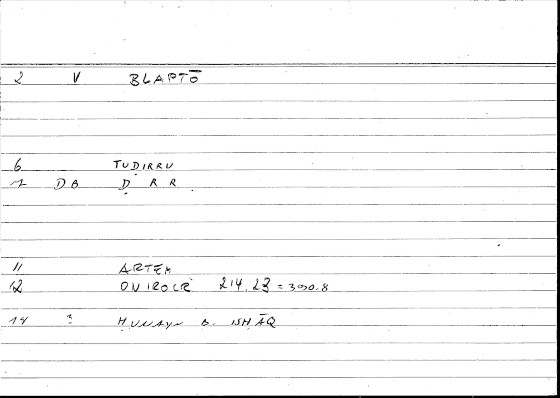 2 V BLAPTŌ
6 TUḌIRRU
7 DB Ḍ R R
11 ARTEM
12 ONIROCR 214.23 = 390.8
14 3 ḤUNAYN B. ISḤĀQ